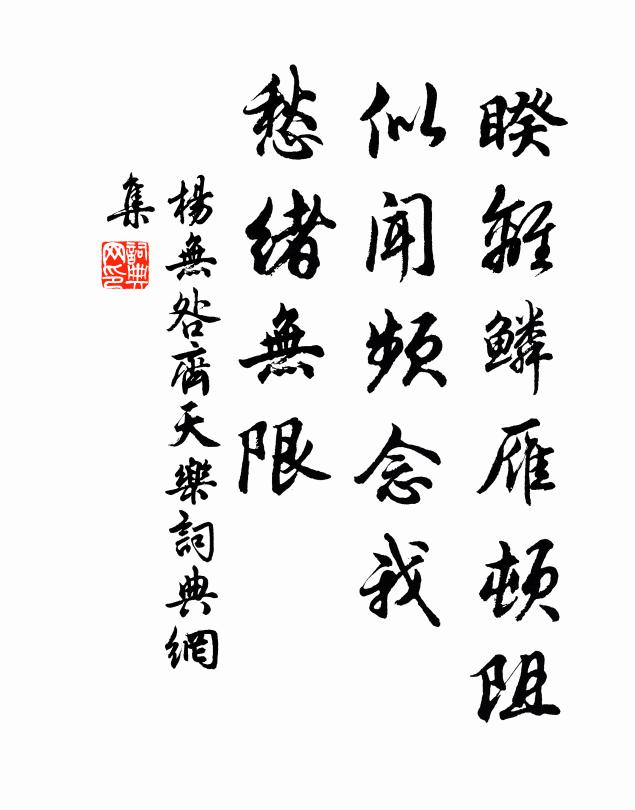 睽離鱗雁頓阻
似聞頻念我
愁緒無限
楊無咎齊天樂詞典網
集
詞典网印